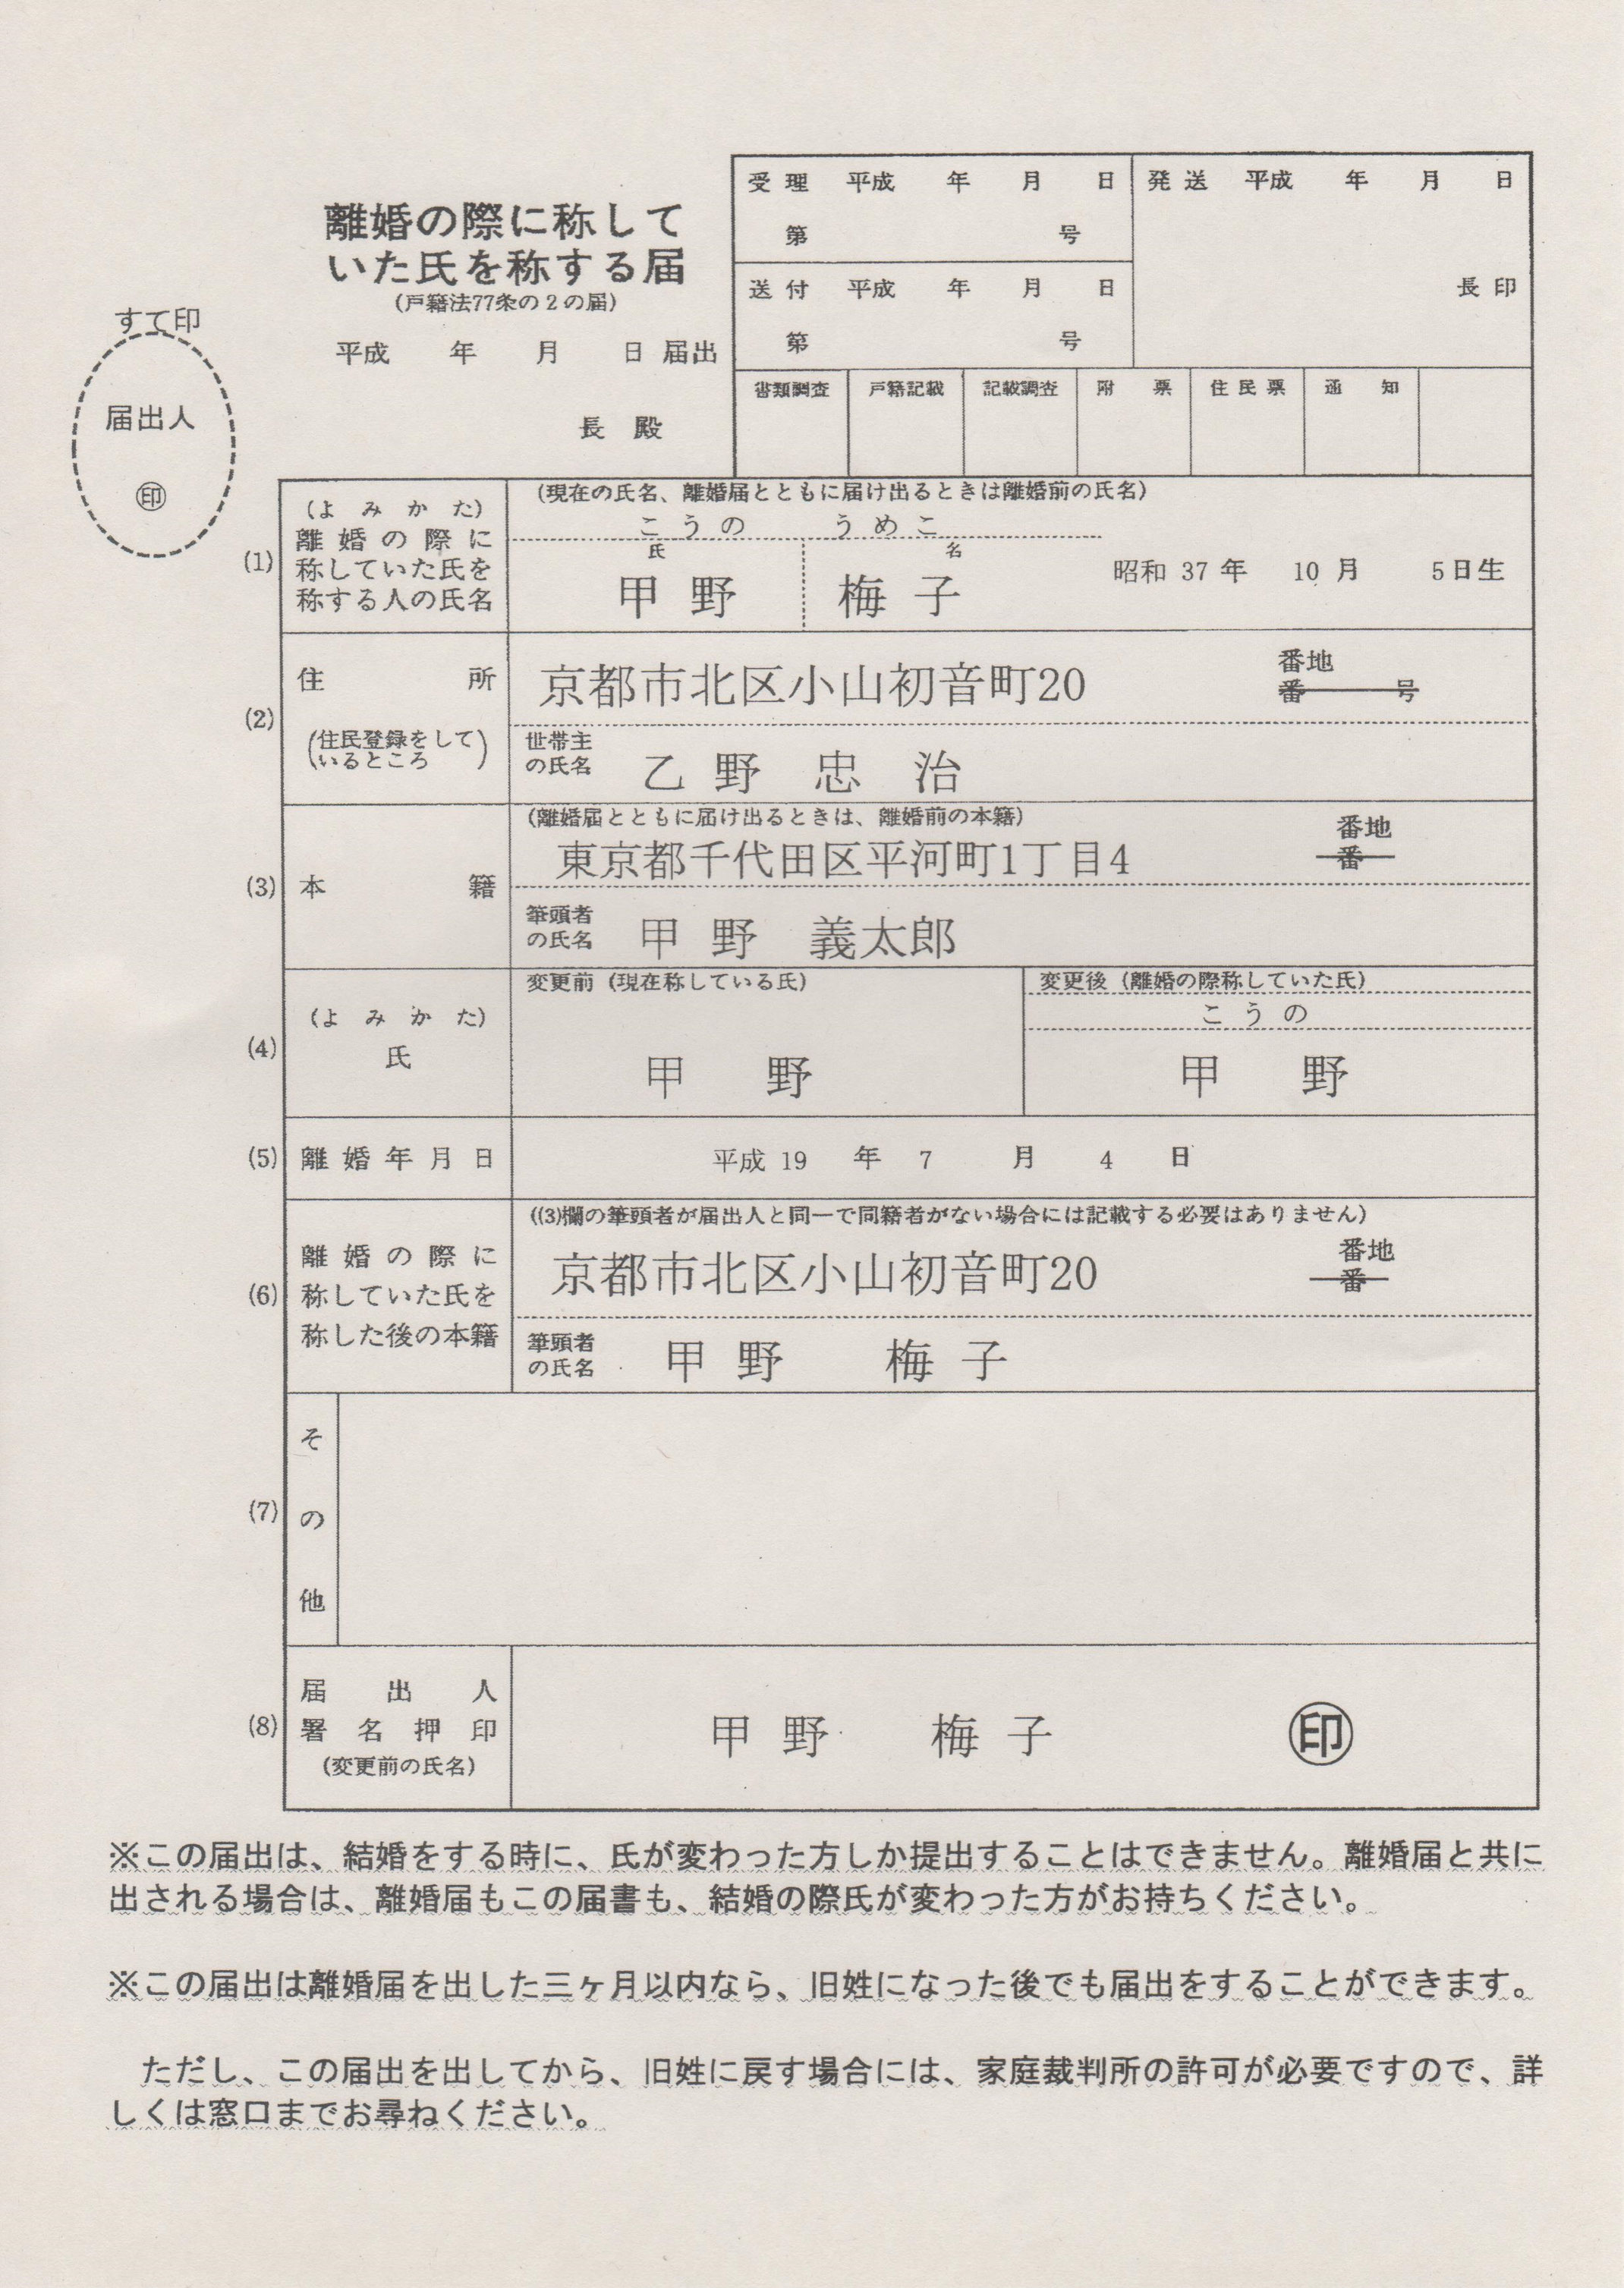 受理 平成 年 月 日
第 号
発送 平成 年 月 日
長印
送付 平成 年 月 日
第 号
書類調査 戸籍記載 記載調査 附票 住民票 通知
離婚の際に称して
いた氏を称する届
(戸籍法77条の2の届)
平成 年 月 日 届出
長 殿
すて印
届出人
㊞
(1)
(よみかた)
離婚の際に
称していた氏を
称する人の氏名
(現在の氏名、離婚届とともに届け出るときは離婚前の氏名)
こうの うめこ
氏 名
甲野 梅子
昭和 37 年 10 月 5日生
(2)
住所
(住民登録をして
いるところ)
京都市北区小山初音町20
番地
番 号
世帯主
の氏名
乙野 忠治
(3)
本籍
(離婚届とともに届け出るときは、離婚前の本籍)
東京都千代田区平河町1丁目4
番地
番
筆頭者
の氏名
甲野 義太郎
(4)
(よみかた)
氏
変更前(現在称している氏)
甲野
変更後(離婚の際称していた氏)
こうの
甲野
(5)
離婚年月日
平成 19 年 7 月 4 日
(6)
離婚の際に
称していた氏を
称した後の本籍
((3)欄の筆頭者が届出人と同一で同籍者がない場合には記載する必要はありません)
京都市北区小山初音町20
番地
番
筆頭者
の氏名
甲野 梅子
(7)
その他
(8)
届出人
署名押印
(変更前の氏名)
甲野 梅子 ㊞
※この届出は、結婚をする時に、氏が変わった方しか提出することはできません。離婚届と共に
出される場合は、離婚届もこの届書も、結婚の際氏が変わった方がお持ちください。
※この届出は離婚届を出した三ヶ月以内なら、旧姓になった後でも届出をすることができます。
ただし、この届出を出してから、旧姓に戻す場合には、家庭裁判所の許可が必要ですので、詳
しくは窓口までお尋ねください。